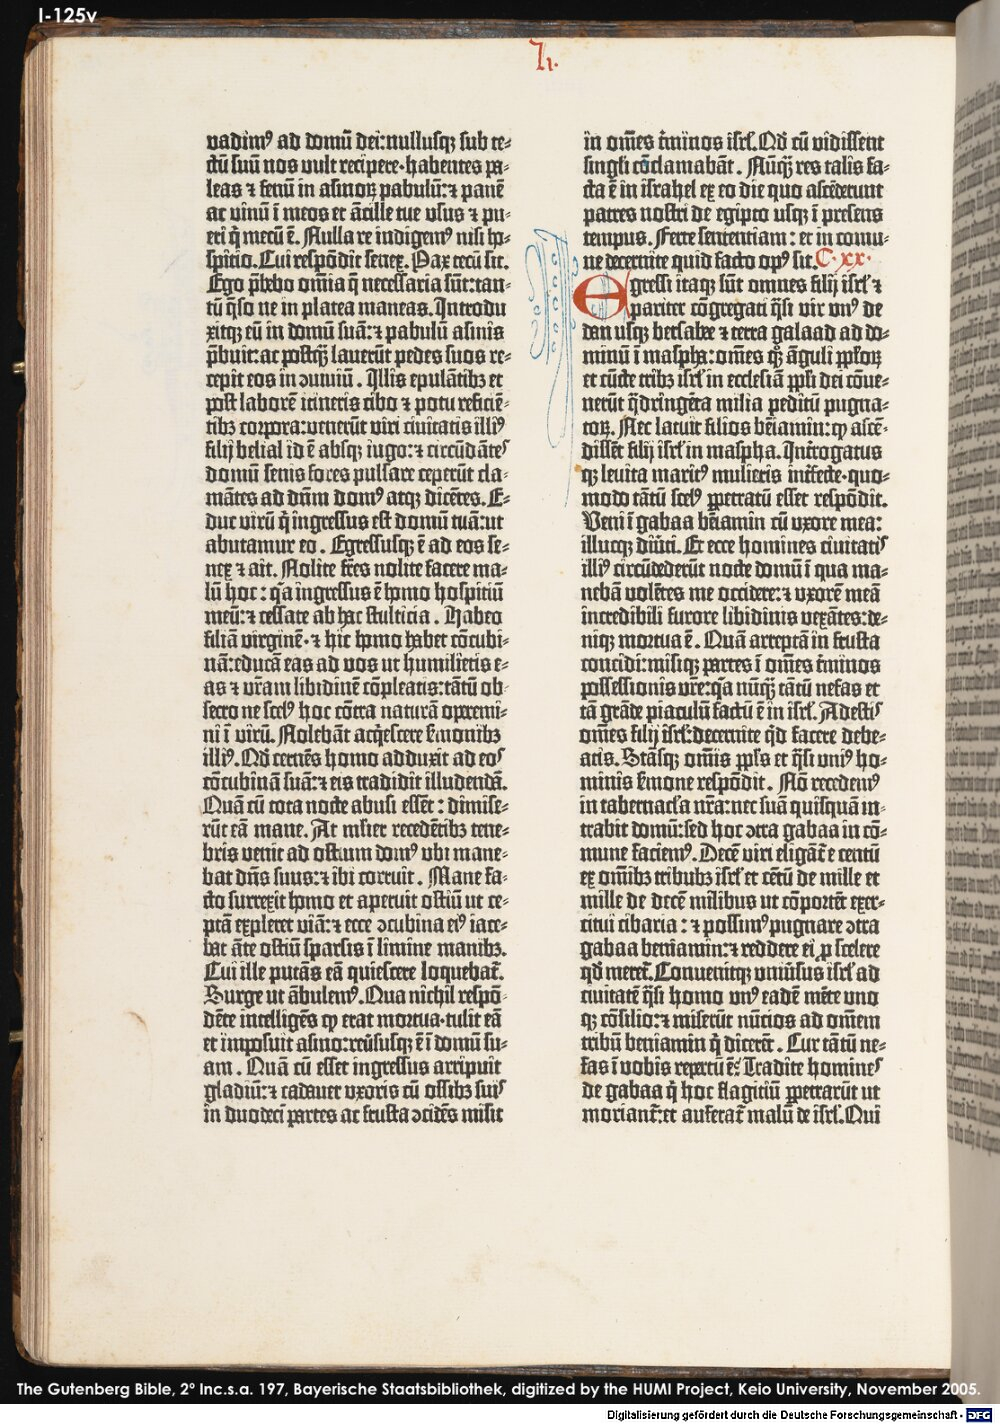 I-125v
Ji.
vadim⁹ ad domū dei: nullusq; sub te-
ctū suū nos vult recipere· habentes pa-
leas ⁊ fenū in asinoꝝ pabulū: ⁊ panē
ac vinū ī meos et ācille tue vsus ⁊ pu-
eri q̇ mecū ē. Nulla re indigem⁹ nisi ho-
spitio. Cui respōdit senex. Pax tecū sit.
Ego p̄bebo om̄ia q̄ necessaria sūt: tan-
tū q̄so ne in platea maneas. Introdu
xitq; eū in domū suā: ⁊ pabulū asinis
p̄buit: ac postq̄ȝ lauerūt pedes suos re-
cepit eos in ↄuiuiū. Illis epulātibȝ et
post laborē itineris cibo ⁊ potu reficiē-
tibȝ corpora: venerūt viri ciuitatis illi⁹
filij belial id ē absq; iugo: ⁊ circūdātes
domū senis fores pulsare ceperūt cla-
mātes ad dn̄m dom⁹ atq; dicētes. E-
duc virū q̇ ingressus est domū tuā: ut
abutamur eo. Egressusq; ē ad eos se-
nex ⁊ ait. Nolite fr̄es nolite facere ma-
lū hoc: q̇a ingressus ē homo hospitiū
meū: ⁊ cessate ab hac stulticia. Habeo
filiā virginē· ⁊ hic homo habet cōcubi-
nā: educā eas ad vos ut humilietis e-
as ⁊ vr̄am libidinē cōpleatis: tātū ob-
secro ne scel⁹ hoc cōtra naturā opremi-
ni ī virū. Nolebāt acq̇escere s̄monibȝ
illi⁹. Qd̄ cernēs homo adduxit ad eos
cōcubinā suā: ⁊ eis tradidit illudendā.
Quā cū tota nocte abusi essēt: dimise-
rūt eā mane. At ml̓ier recedētibȝ tene-
bris venit ad ostium dom⁹ vbi mane-
bat dn̄s suus: ⁊ ibi corruit. Mane fa-
cto surrexit homo et aperuit ostiū ut ce-
ptā expleret viā: ⁊ ecce ↄcubina ei⁹ iace-
bat āte ostiū sparsis ī limine manibȝ.
Cui ille putās eā quiescere loquebat̄.
Surge ut ābulem⁹. Qua nichil respō-
dēte intelligēs ꝙ erat mortua· tulit eā
et imposuit asino: reu̓susq; ē ī domū su-
am. Quā cū esset ingressus arripuit
gladiū: ⁊ cadauer vxoris cū ossibȝ suis
in duodecī partes ac frusta ↄcidēs misit
in om̄es t̓minos isrl̓. Qd̄ cū vidissent
singl̓i cōclamabāt. Nūq̄ȝ res talis fa-
cta ē in israhel ex eo die quo ascēderunt
patres nostri de egipto usq; ī presens
tempus. Ferte sententiam: et in comu-
ne decernite quid facto op⁹ sit. C·xx·
Egressi itaq; sūt omnes filij isrl̓ ⁊
pariter cōgregati q̄si vir vn⁹ de
dan usq; bersabee ⁊ terra galaad ad do-
minū ī maspha: om̄es q; āguli pp̄loꝝ
et cūcte tribȝ isrl̓ in ecclesiā pp̄li dei cōue-
nerūt q̇dringēta milia peditū pugna-
toꝝ. Nec latuit filios bēiamin: ꝙ ascē-
dissēt filij isrl̓ in maspha. Int̓rogatus
q; leuita marit⁹ mulieris int̓fecte· quo-
modo tātū scel⁹ ꝑpetratū esset respōdit.
Veni ī gabaa bēiamin cū vxore mea:
illucq; diu̓ti. Et ecce homines ciuitatis
illi⁹ circūdederūt nocte domū ī qua ma-
nebā volētes me occidere: ⁊ vxorē meā
incredibili furore libidinis vexātes: de-
niq; mortua ē. Quā arreptā in frusta
concidi: misiq; partes ī om̄es t̓minos
possessionis vr̄e: q̇a nūq̄ȝ tātū nefas et
tā grāde piaculū factū ē in isrl̓. Adestis
om̄es filij isrl̓: decernite q̇d facere debe-
atis. Stāsq; om̄is pp̄ls et q̄si uni⁹ ho-
minis s̓mone respōdit. Nō recedem⁹
in tabernacl̓a nr̄a: nec suā quisquā in-
trabit domū: sed hoc ↄtra gabaa in cō-
mune faciem⁹. Decē viri eligāt̄ e centū
ex om̄ibȝ tribubȝ isrl̓ et cētū de mille et
mille de decē milibus ut cōportēt exer-
citui cibaria: ⁊ possim⁹ pugnare ↄtra
gabaa beniamin: ⁊ reddere ei ꝓ scelere
qd̓ meret̄. Conuenitq; vniu̓sus isrl̓ ad
ciuitatē q̄si homo vn⁹ eadē mēte uno
q; cōsilio: ⁊ miserūt nūcios ad omēm
tribū beniamin q̇ dicerēt. Cur tātū ne-
fas ī vobis repertū ē? Tradite homines
de gabaa q̇ hoc flagiciū ꝑpetrarūt ut
moriant̄: et auferat̄ malū de isrl̓. Qui
The Gutenberg Bible, 2° Inc.s.a. 197, Bayerische Staatsbibliothek, digitized by the HUMI Project, Keio University, November 2005.
Digitalisierung gefördert durch die Deutsche Forschungsgemeinschaft - DFG